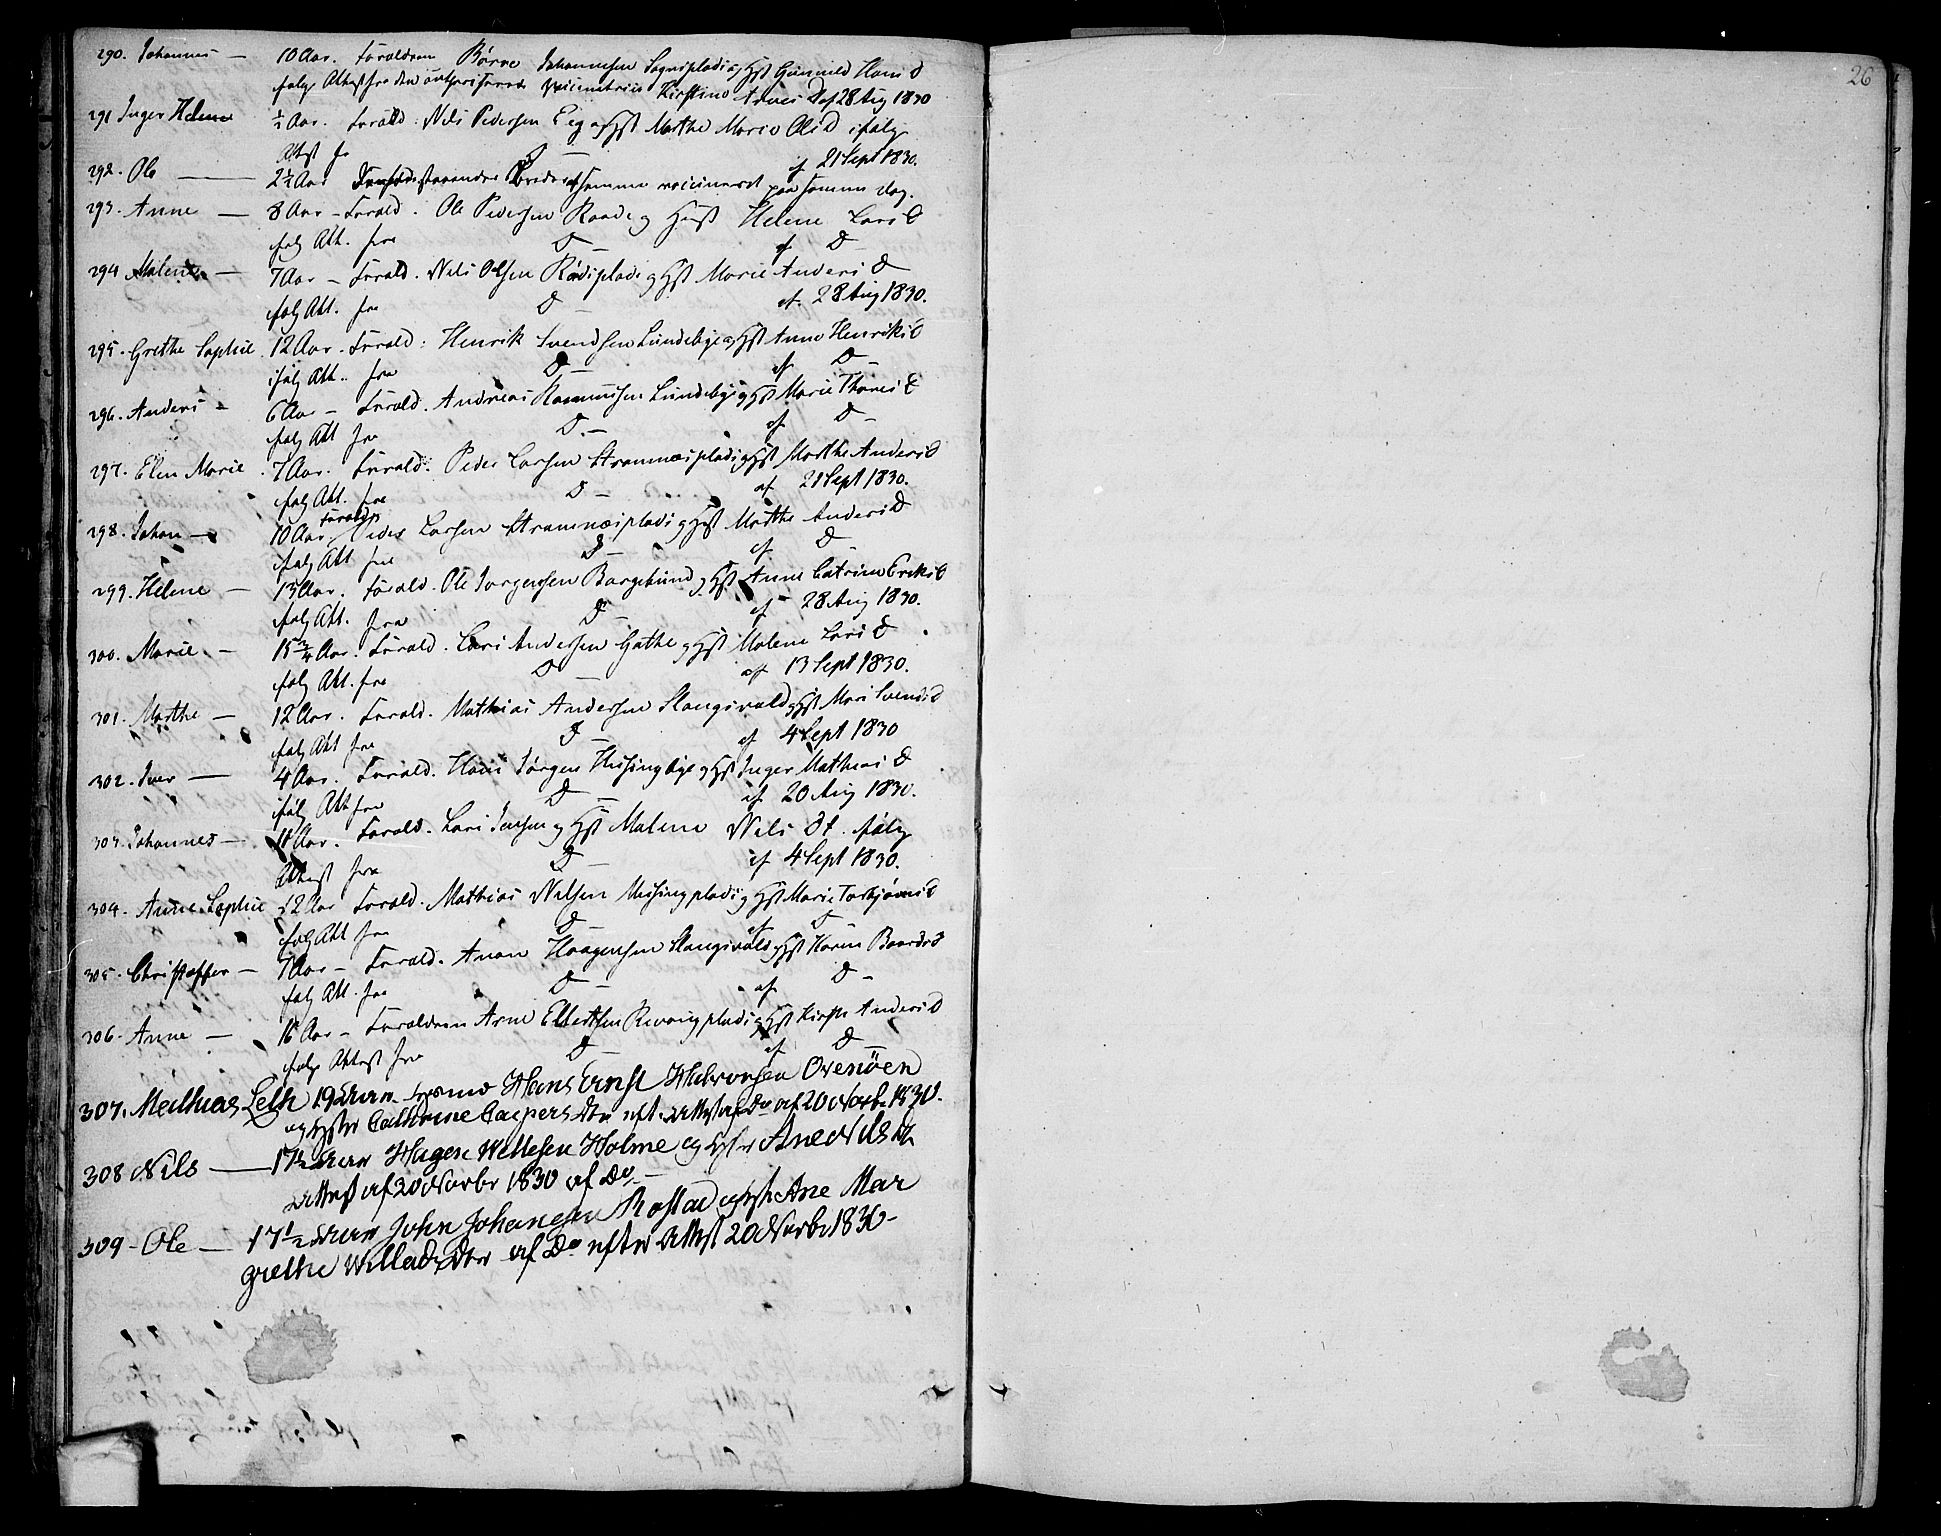 290. Johannes — 10 Aar. Forældrene Børre Johannesen Sogneplads og Hst Gunnild Hans D
følge Attest fra den authoriserede Kirstine Arnes D af 28 Aug 1830
291 Inger Helene ½ Aar. Foræld: Nils Pedersen Eeg og Hst Marthe Marie Ols D ifølg
Attest fr D — af 21 Sept 1830.
292. Ole — 2½ Aar samme vaccineret paa samme dag.
293. Anne — 8 Aar — Foræld. Ole Pedersen Raade og Hust Helene Lars D
følg Att. fra D — af D —
294 Malene — 7 Aar — Foræld. Nils Olsen Rødsplads og Hst Marie Anders D
følg Att. fra D af 28 Aug 1830.
295. Grethe Sophie. 12 Aar. Foræld: Henrik Svendsen Lundebye og Hst Anne Henriks D
ifølg Att. fra D — af D —
296. Anders — 6 Aar — Foræld. Andreas Rasmussen Lundebye og Hst Marie Thores D
følg Att fra D. — af D —
297. Elen Marie. 7 Aar. Foræld: Peder Larsen Stramnæsplads og Hst Marthe Anders D
følg Att. fra D — af 21 Sept 1830.
298. Johan — 10 Aar Foræld. Peder Larsen Stramnæsplads og Hst Marthe Anders D
følg Att fra D — af D
299. Helene — 13 Aar. Foræld. Ole Jorgensen Borgesund og Hst Anne Catrine Eriks D
følg Att. fra D — af 28 Aug 1830.
300. Marie — 15¾ Aar. Foræld. Lars Andersen Gathe og Hst Malene Lars D.
følg Att. fra D — af 13 Sept 1830.
301. Marthe — 12 Aar. Foræld. Mathias Andersen Slangsvold og Hst Mari Svends D
følg Att fra D — af 4 Sept 1830
302. Iver — 4 Aar. Foræld. Hans Jørgen Huseingbye og Hst Inger Mathias D
ifølg Att fra D — af 20 Aug 1830.
303. Johannes — 11 Aar. Foræld. Lars Jensen og Hst Malene Nils Dt. følg
Attest fra D — af 4 Sept 1830.
304. Anne Sophie 12 Aar Foræld. Mathias Nilsen Husingplads og Hst Marie Torbjørns D
følg Att fra D af D
305. Christopher — 7 Aar — Foræld. Anon Haagensen Slangsvold og Hst Karen Baards D
følg Att. fra D — af D —
306. Anne — 16 Aar — Forældren Arne Ellertsen Revoug plads og Hst Kirsti Anders D
følge Attest fra D af D —
307. Mathias Leth 19 Aar Hans Ernst Halvorsen Ovenöen
og Hstr Cathrine Caspers Dtr eft. Attest af Do af 20 Novbr 1830.
308 Nils — 17½ Aar Hagen Nillesen Holme og Hstr Ane Nils Dtr
Attest af 20 Novbr 1830 af Do —
309 - Ole — 17½ Aar John Johansen Rostad og Hst Ane Mar
grethe Willads Dtr af Do efter Attest 20 Novbr 1830 -
26